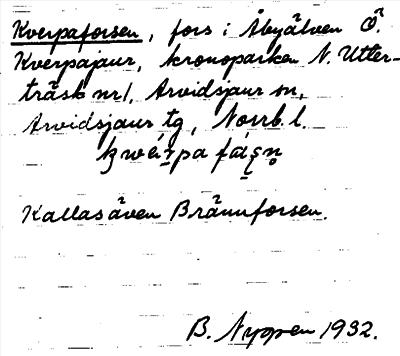 Kverpaforsen, fors i Åbyälven Ö.
Kverpajaur, kronoparken N. Utter-
träsk nr 1, Arvidsjaur sn,
Arvidsjaur tg, Norrb. l.
Kallas även Brännforsen.
B. Nyppen 1932.